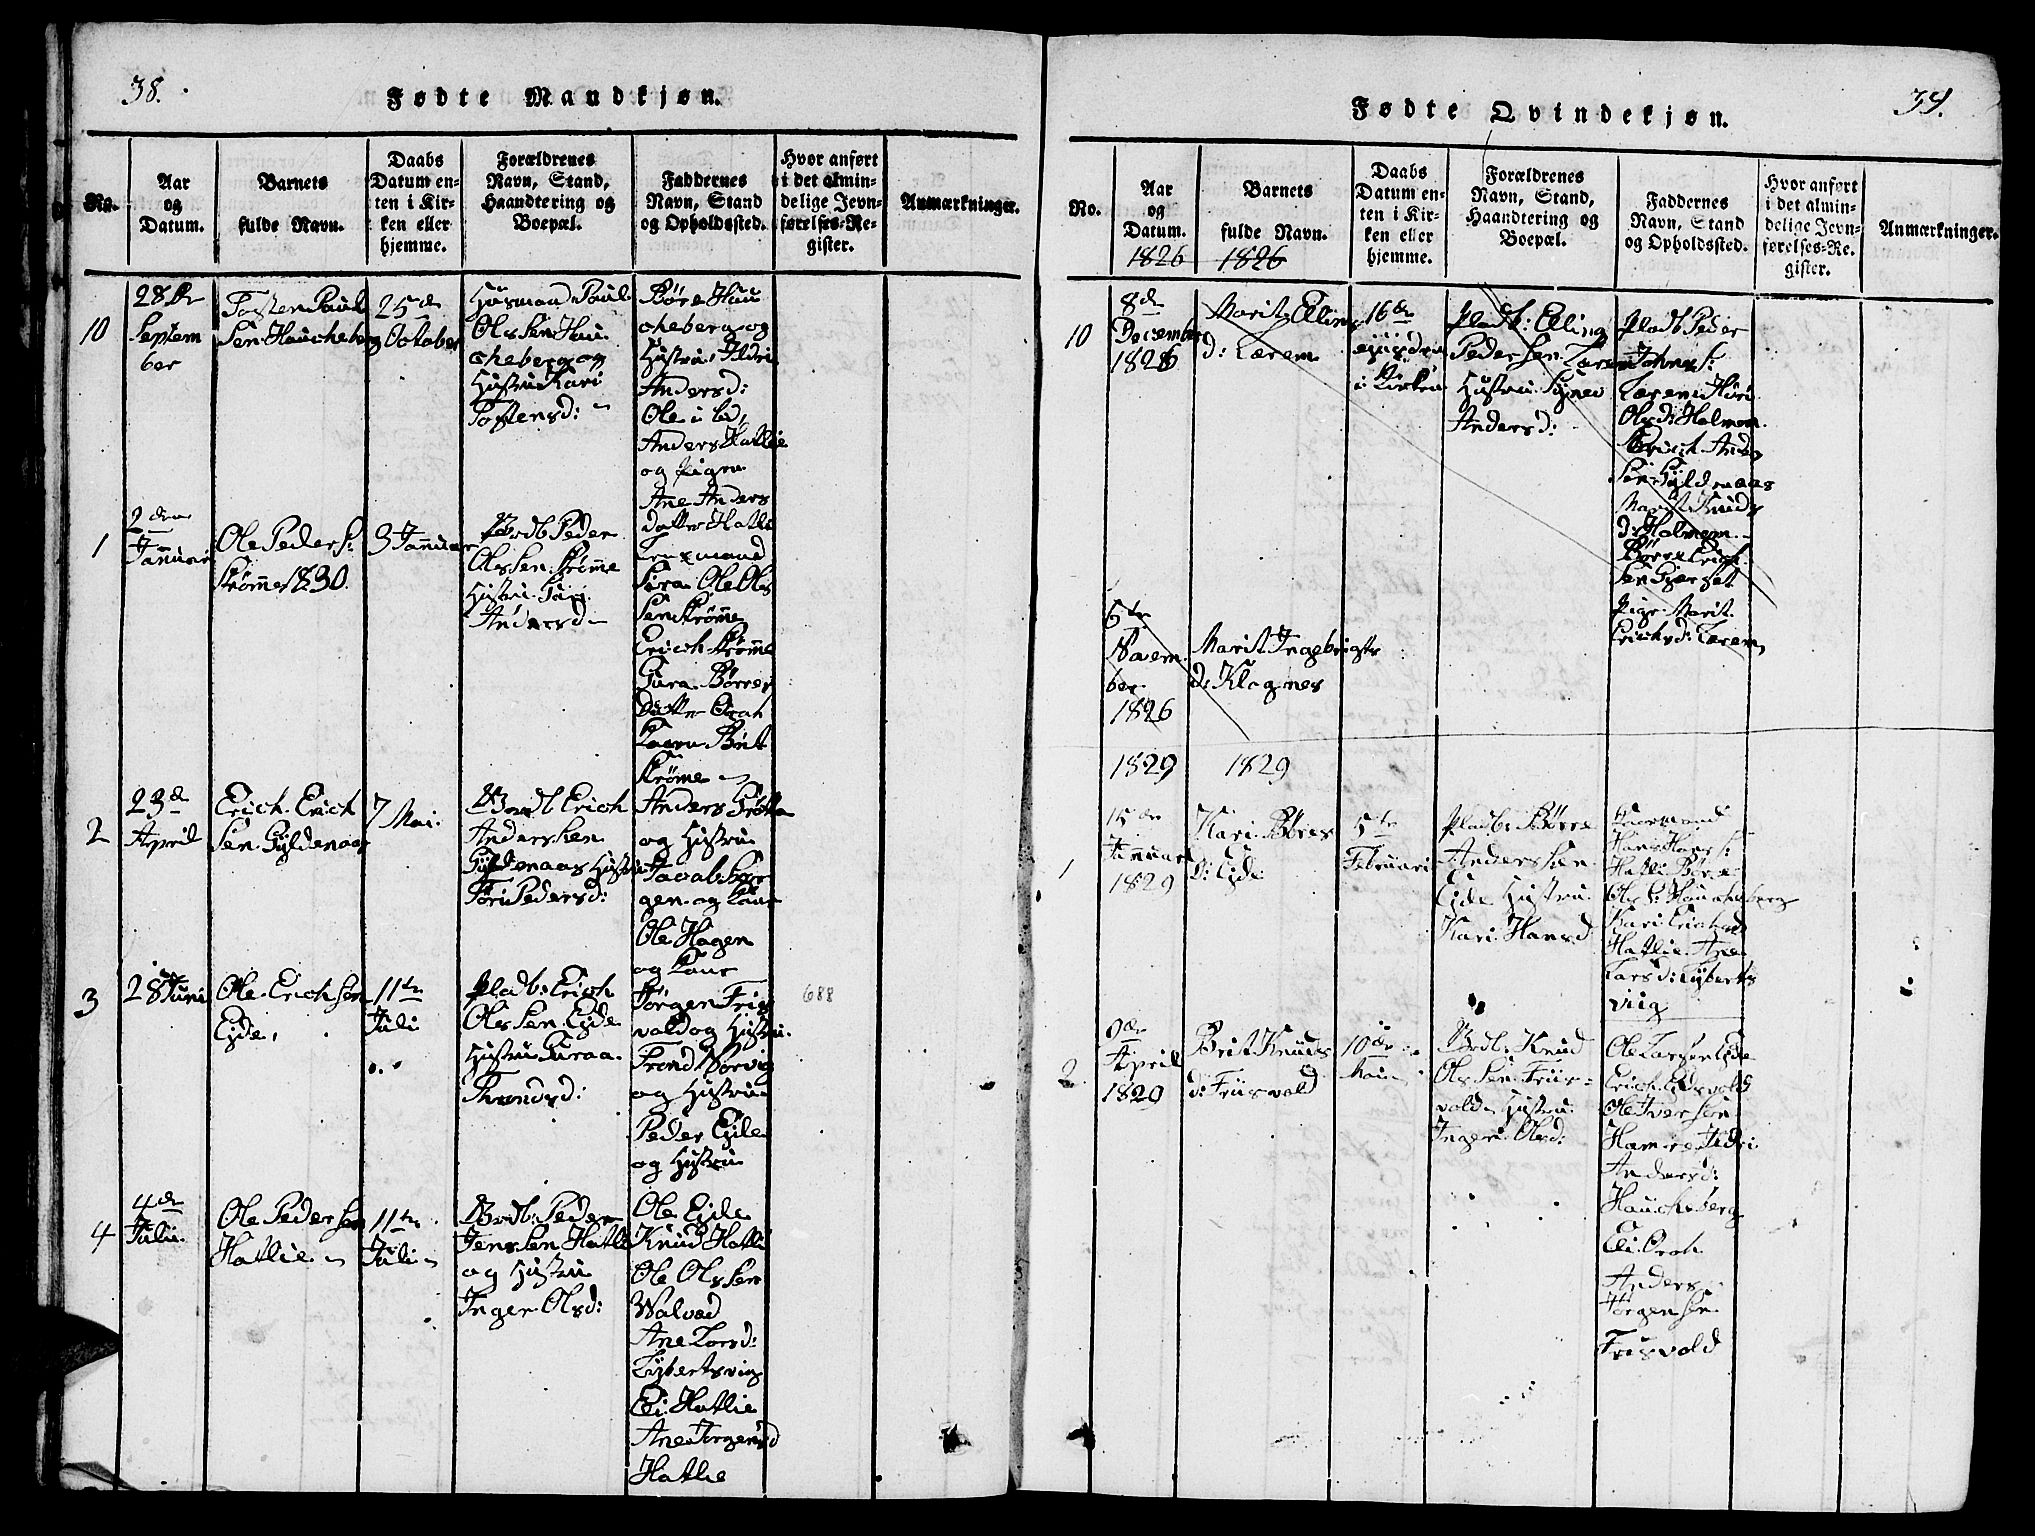 38.
Fødte Mandkjøn.
No.
Aar
og
Datum.
Barnets
fulde Navn.
Daabs
Datum en-
ten i Kir-
ken eller
hjemme.
Forældrenes
Navn, Stand,
Haandtering og
Boepæl.
Faddernes
Navn, Stand
og Opholdssted.
Hvor anført
i det almin-
delige Jevn-
førelses-Re-
gister.
Anmærkninger.
10
28de
Septem
ber
Tosten Paul
Sen Hauckeberg
25de
October
Huusmand Paul
Ols Sen Hau
ckeberg og
Hustru Kari
Tostensd:
Børe Hau
ckeberg og
Hustru Ildri
Andersd:
Ole i bd,
Anders Hatlie
og Pigen
Ane Anders
datter Hatle
1
2den
Januari
Ole Peders:
Strømme 1830.
3 Januar
Brdb Peder
Ols Sen Strømme
Hustru Turi
Andersd
Lensmand
Sira Ole Ols
Sen Strømme
Erich Strømme
Gura Børres
Datter Orah
Karen Brit
Strømme
2
23de
April
Erich Erich
Sen Gyldenaas
7 Mai.
Brdb Erich
Andersen
Gyldenaas Hustru
Turi Pedersd:
Anders Grøtta
og Hustru
gen og Kone
Ole Hagen
og Kone
3
28 Juni
Ole Erichsen
Ejde,
11te
Juli
Pladb: Erich
Ols Sen Ejde
Hustru Guraa
Throndsd:
Jørgen Friis
vold og Hustru.
Trond Norvig
og Hustru
Peder Ejde
og Hustru
688
4
4de
Julii.
Ole Peder Sen
Hatlie
11te
Juli
Brdb: Peder
Jens Sen Hatle
og Hustru
Inger Olsd:
Ole Ejde
Knud Hatle
Ole Ols Sen
Walvad
Ane Larsd:
Lybertsvig
Eli Hatlie
Ane Jørgensd
Hatlie
Fødte Qvindekjøn.
39.
No.
Aar
og
Datum.
1826
Barnets
fulde Navn.
1826
Daabs
Datum en-
ten i Kir-
ken eller
hjemme.
Forældrenes
Navn, Stand,
Haandtering og
Boepæl.
Faddernes
Navn, Stand
og Opholdssted.
Hvor anført
i det almin-
delige Jevn-
førelses-Re-
gister.
Anmærkninger.
10
8de
December
1826
Marit Ellings
d: Lærem
16de
ejusdem
i Kirken
Pladb: Elling
Peder Sen Lærem
Hustru Signe
Andersd:
Pladb Peder
Johns:
Lærem Huri
Olsd: Holmem
Erich Anders
Sen Gyldenaas
Marit Knuds
d: Holmem
Børre Erich
Sen Gjerset
Pige Marit
Erichsd: Lærem
5te
Novem
ber
1826
Marit Ingebrigts
d: Klognes
1829
1829
1
15de
Januari
1829
Kari Børes
D: Ejde
5te
Februari
Pladb: Børre
Andersen
Ejde Hustru
Kari Hansd
Hans Hans S:
Hatle Børe
Ols S: Hauckeberg
Kari Erichsd
Hatlie Ane
Larsd: Lyberts
viig
2
April
1829
Brit Knuds
d: Friisvold
10de
Mai
Brdb: Knud
Ols Sen Friis-
vold Hustru
Ingeri Olsd:
Ole Larsen Ejde
Erich Eidsvold
Ole Iversen
Hamre Ildri
Andersd:
Hauckeberg
Eli Orah
Anders
Jørgensen
Friisvold